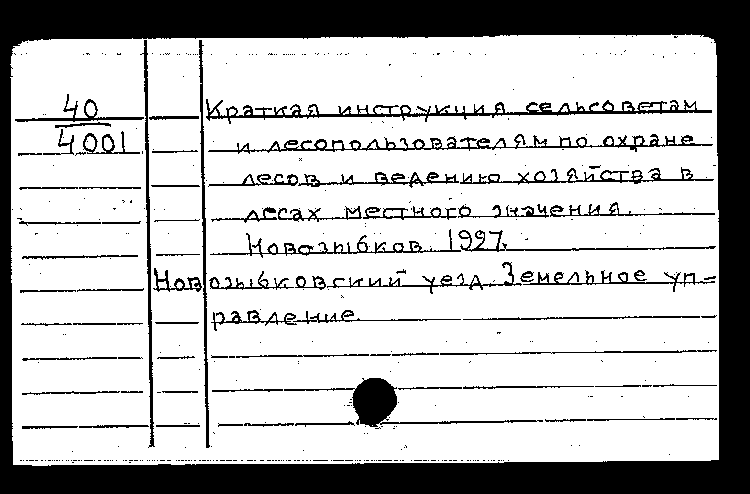 40
4001
Краткая инструкция сельсоветам
и лесопользователям по охране
лесов и ведению хозяйства в
лесах местного значения.
Новозыбков. 1927.
Новозыбковский уезд. Земельное уп-
равление.